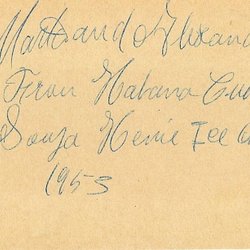 Matt and Alexand
From Habana Cu
Sonja Henie Ice
1953